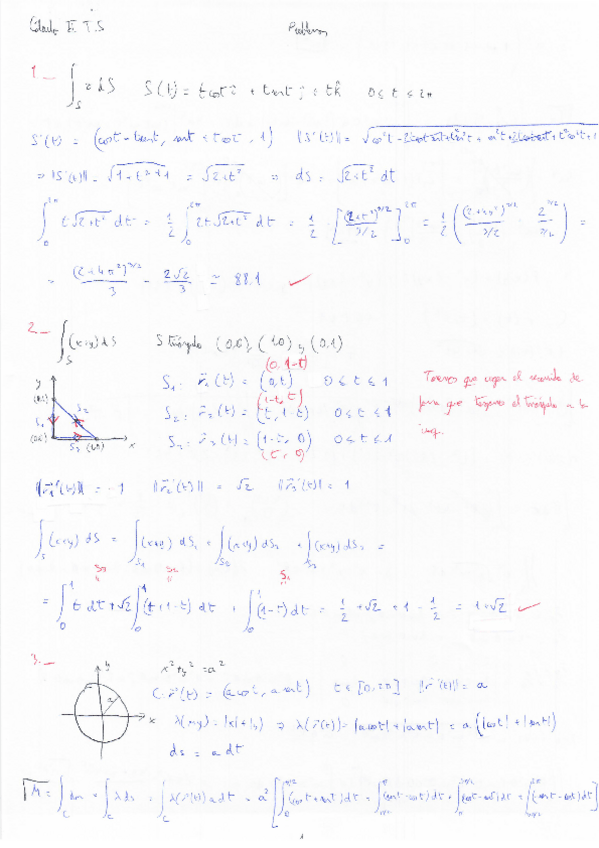 Cálculo II T.5 Problemas
1._ ∫_S z dS S(t) = t cos t i + t sent j + t k 0 ≤ t ≤ 2π
S'(t) = (cos t - t sent, sent + t cos t, 1) ||S'(t)|| =
⇒ ||S'(t)|| = √(1+t²+1) = √(2+t²) ⇒ dS = √(2+t²) dt
∫_0^{2π} t√(2+t²) dt = 1/2 ∫_0^{2π} 2t√(2+t²) dt = 1/2 · [(2+t²)^{3/2} / 3/2]_0^{2π} = 1/2 ((2+4π²)^{3/2} / 3/2 - 2^{3/2} / 3/2) =
= (2+4π²)^{3/2} / 3 - 2√2 / 3 ≃ 88.1 ✓
2._ ∫_S (x+y) dS S triángulo (0,0), (1,0) y (0,1)
(0, 1-t)
S₁: r₁(t) = (0, t) 0 ≤ t ≤ 1
(1-t, t)
S₂: r₂(t) = (t, 1-t) 0 ≤ t ≤ 1
S₃: r₃(t) = (1-t, 0) 0 ≤ t ≤ 1
(t, 0)
Tenemos que coger el recorrido de
forma que tengamos el triángulo a la
izq.
y
(0,1)
S₁ S₂
(0,0) S₃ (1,0) x
||r₁'(t)|| = 1 ||r₂'(t)|| = √2 ||r₃'(t)|| = 1
∫_S (x+y) dS = ∫_{S₁} (x+y) dS₁ + ∫_{S₂} (x+y) dS₂ + ∫_{S₃} (x+y) dS₃ =
= ∫_0^1 t dt + √2 ∫_0^1 (t+1-t) dt + ∫_0^1 (1-t) dt = 1/2 + √2 + 1 - 1/2 = 1+√2 ✓
3._ x²+y² = a²
C: r(t) = (a cos t, a sent) t ∈ [0, 2π] ||r'(t)|| = a
y
a
x
λ(x,y) = |x| + |y| ⇒ λ(r(t)) = |a cos t| + |a sent| = a (|cos t| + |sent|)
ds = a dt
M = ∫_C dm = ∫_C λ ds = ∫_C λ(r(t)) a dt = a² [∫_0^{π/2} (cos t + sent) dt + ∫_{π/2}^{π} (sent - cos t) dt + ∫_π^{3π/2} (-sent - cos t) dt + ∫_{3π/2}^{2π} (cos t - sent) dt]
1